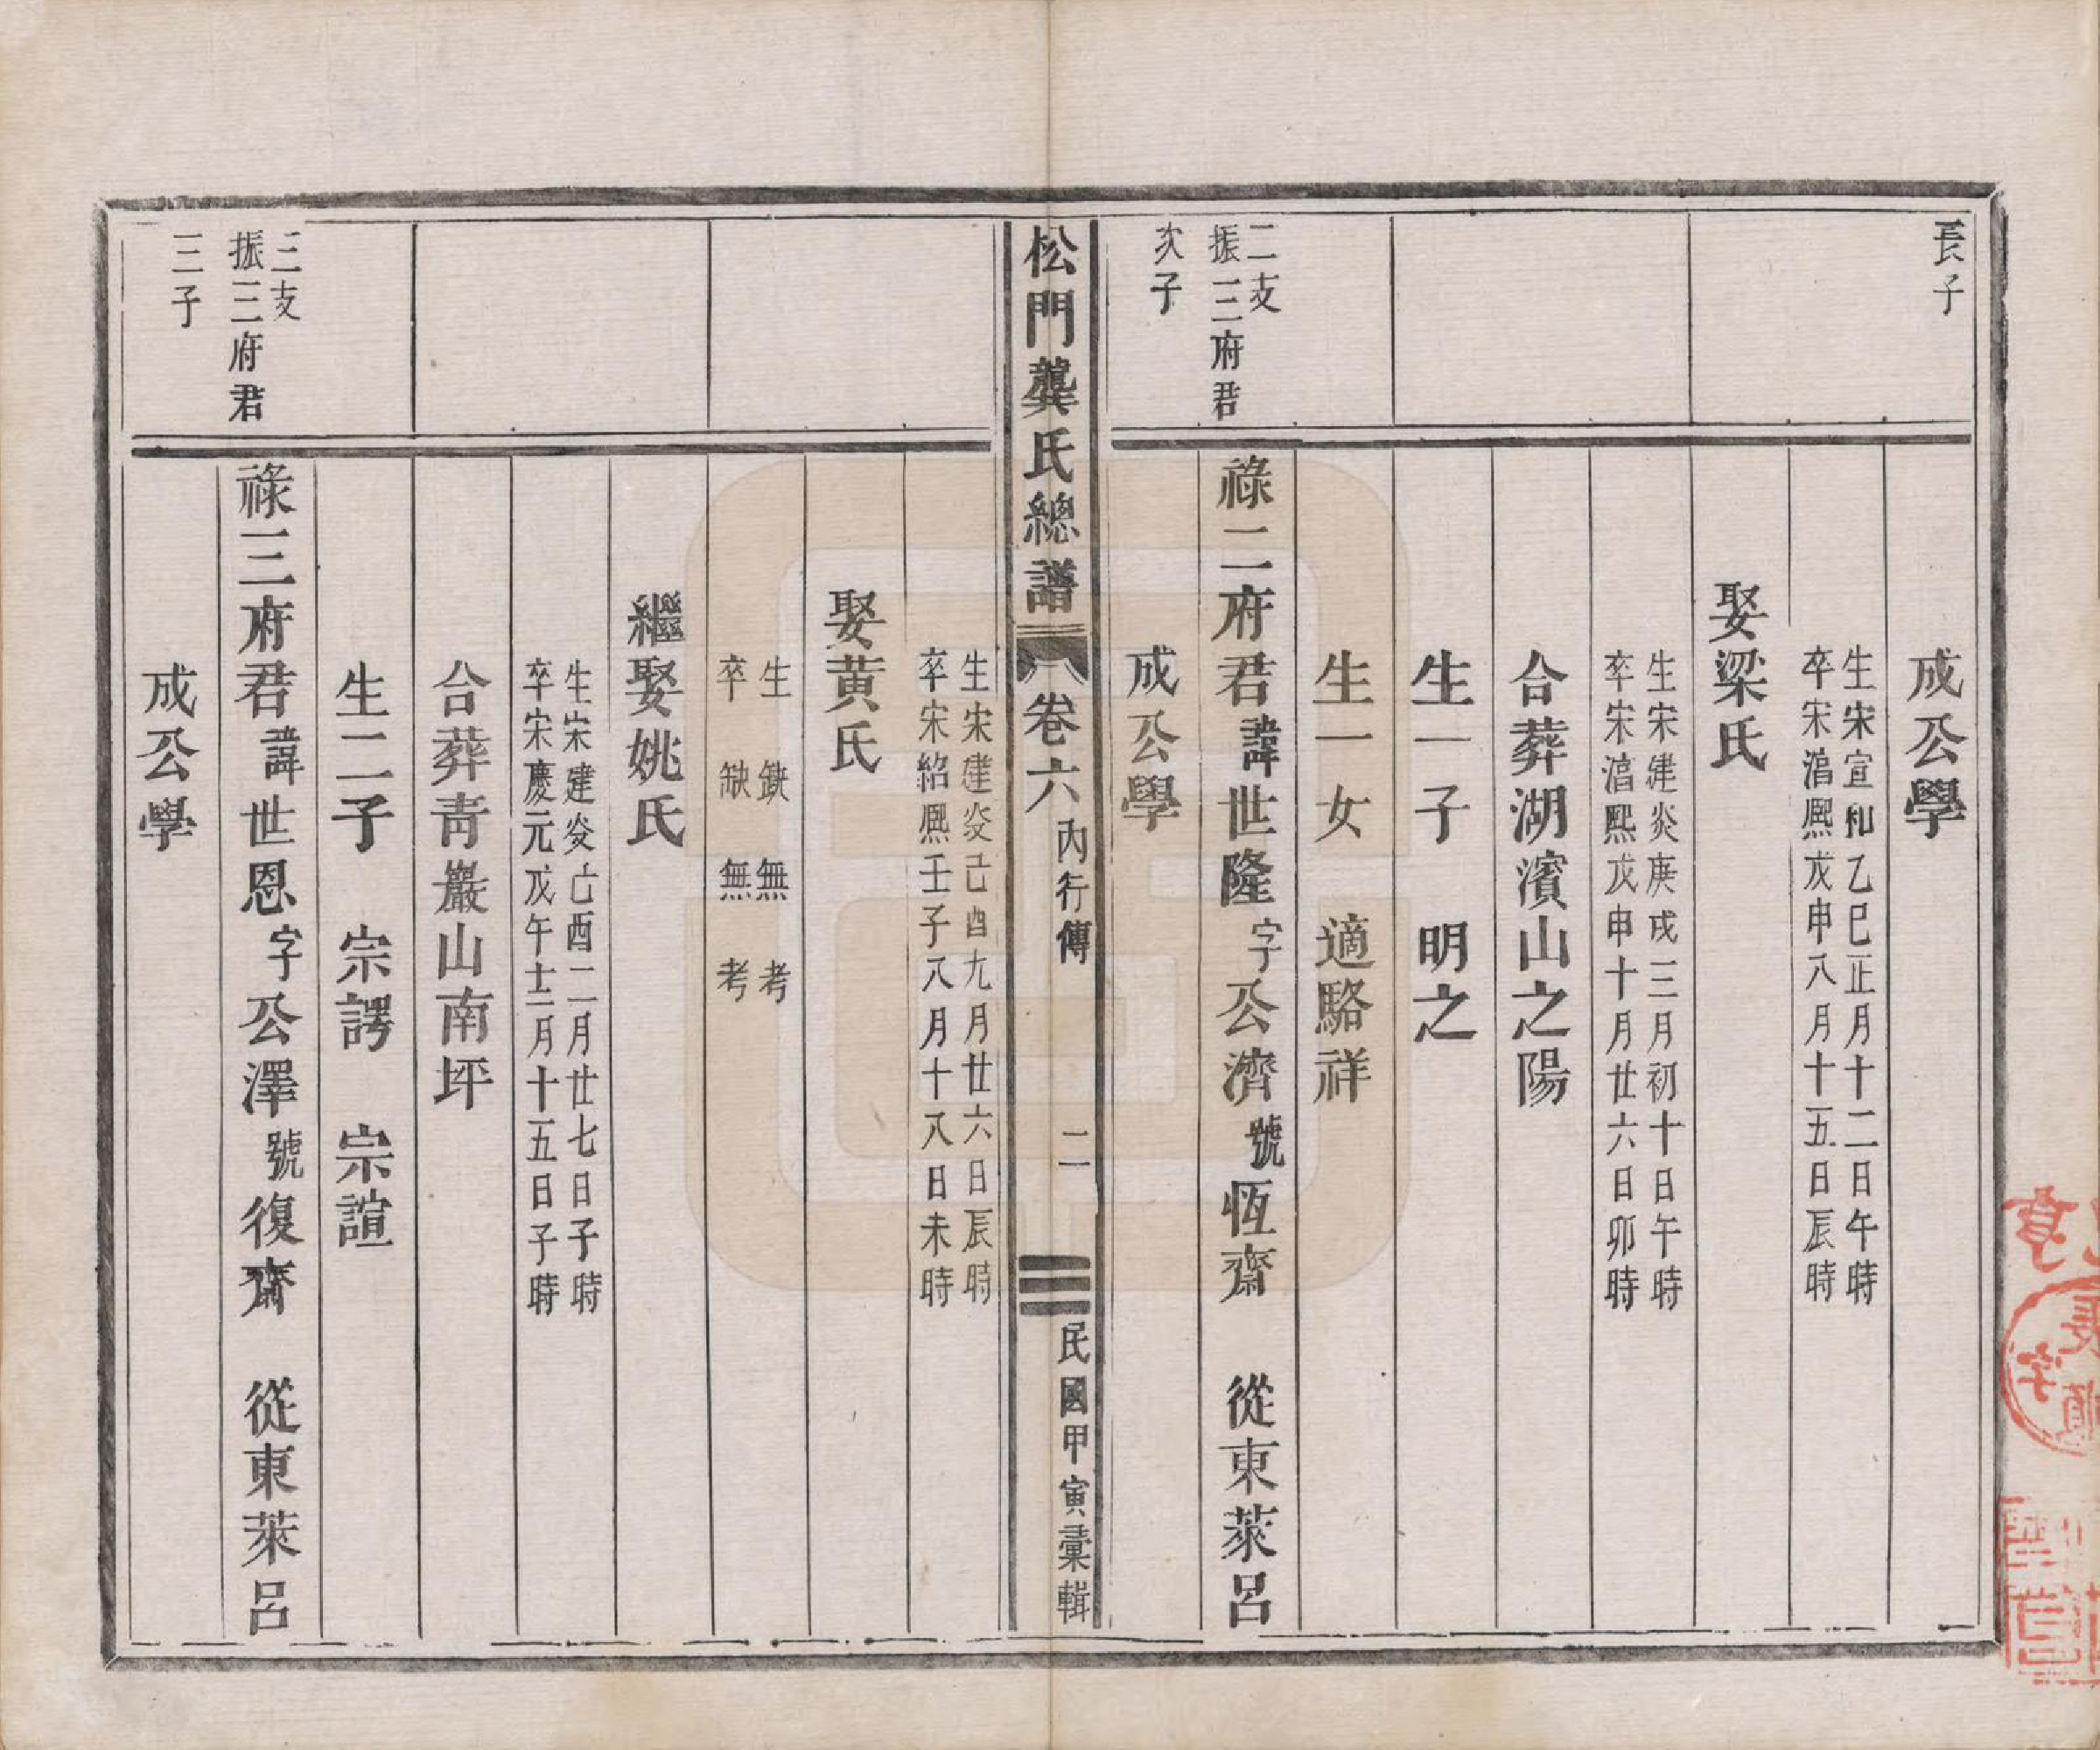 長子
成公學
生宋宣和乙巳正月十二日午時
卒宋湻熙戊申八月十五日辰時
娶梁氏
生宋建炎庚戌三月初十日午時
卒宋湻熙戊申十月廿六日卯時
合葬湖濱山之陽
生一子 明之
生一女 適駱祥
二支
振三府君
次子
祿二府君諱世隆字公濟號恆齋 從東萊呂
成公學
松門龔氏總譜 卷六 內行傳 二 民國甲寅彙輯
生宋建炎己酉九月廿六日辰時
卒宋紹熙壬子八月十八日未時
娶黃氏
生缺無考
卒缺無考
繼娶姚氏
生宋建炎己酉二月廿七日子時
卒宋慶元戊午十二月十五日子時
合葬青巖山南坪
生二子 宗諤 宗諠
三支
振三府君
三子
祿三府君諱世恩字公澤號復齋 從東萊呂
成公學